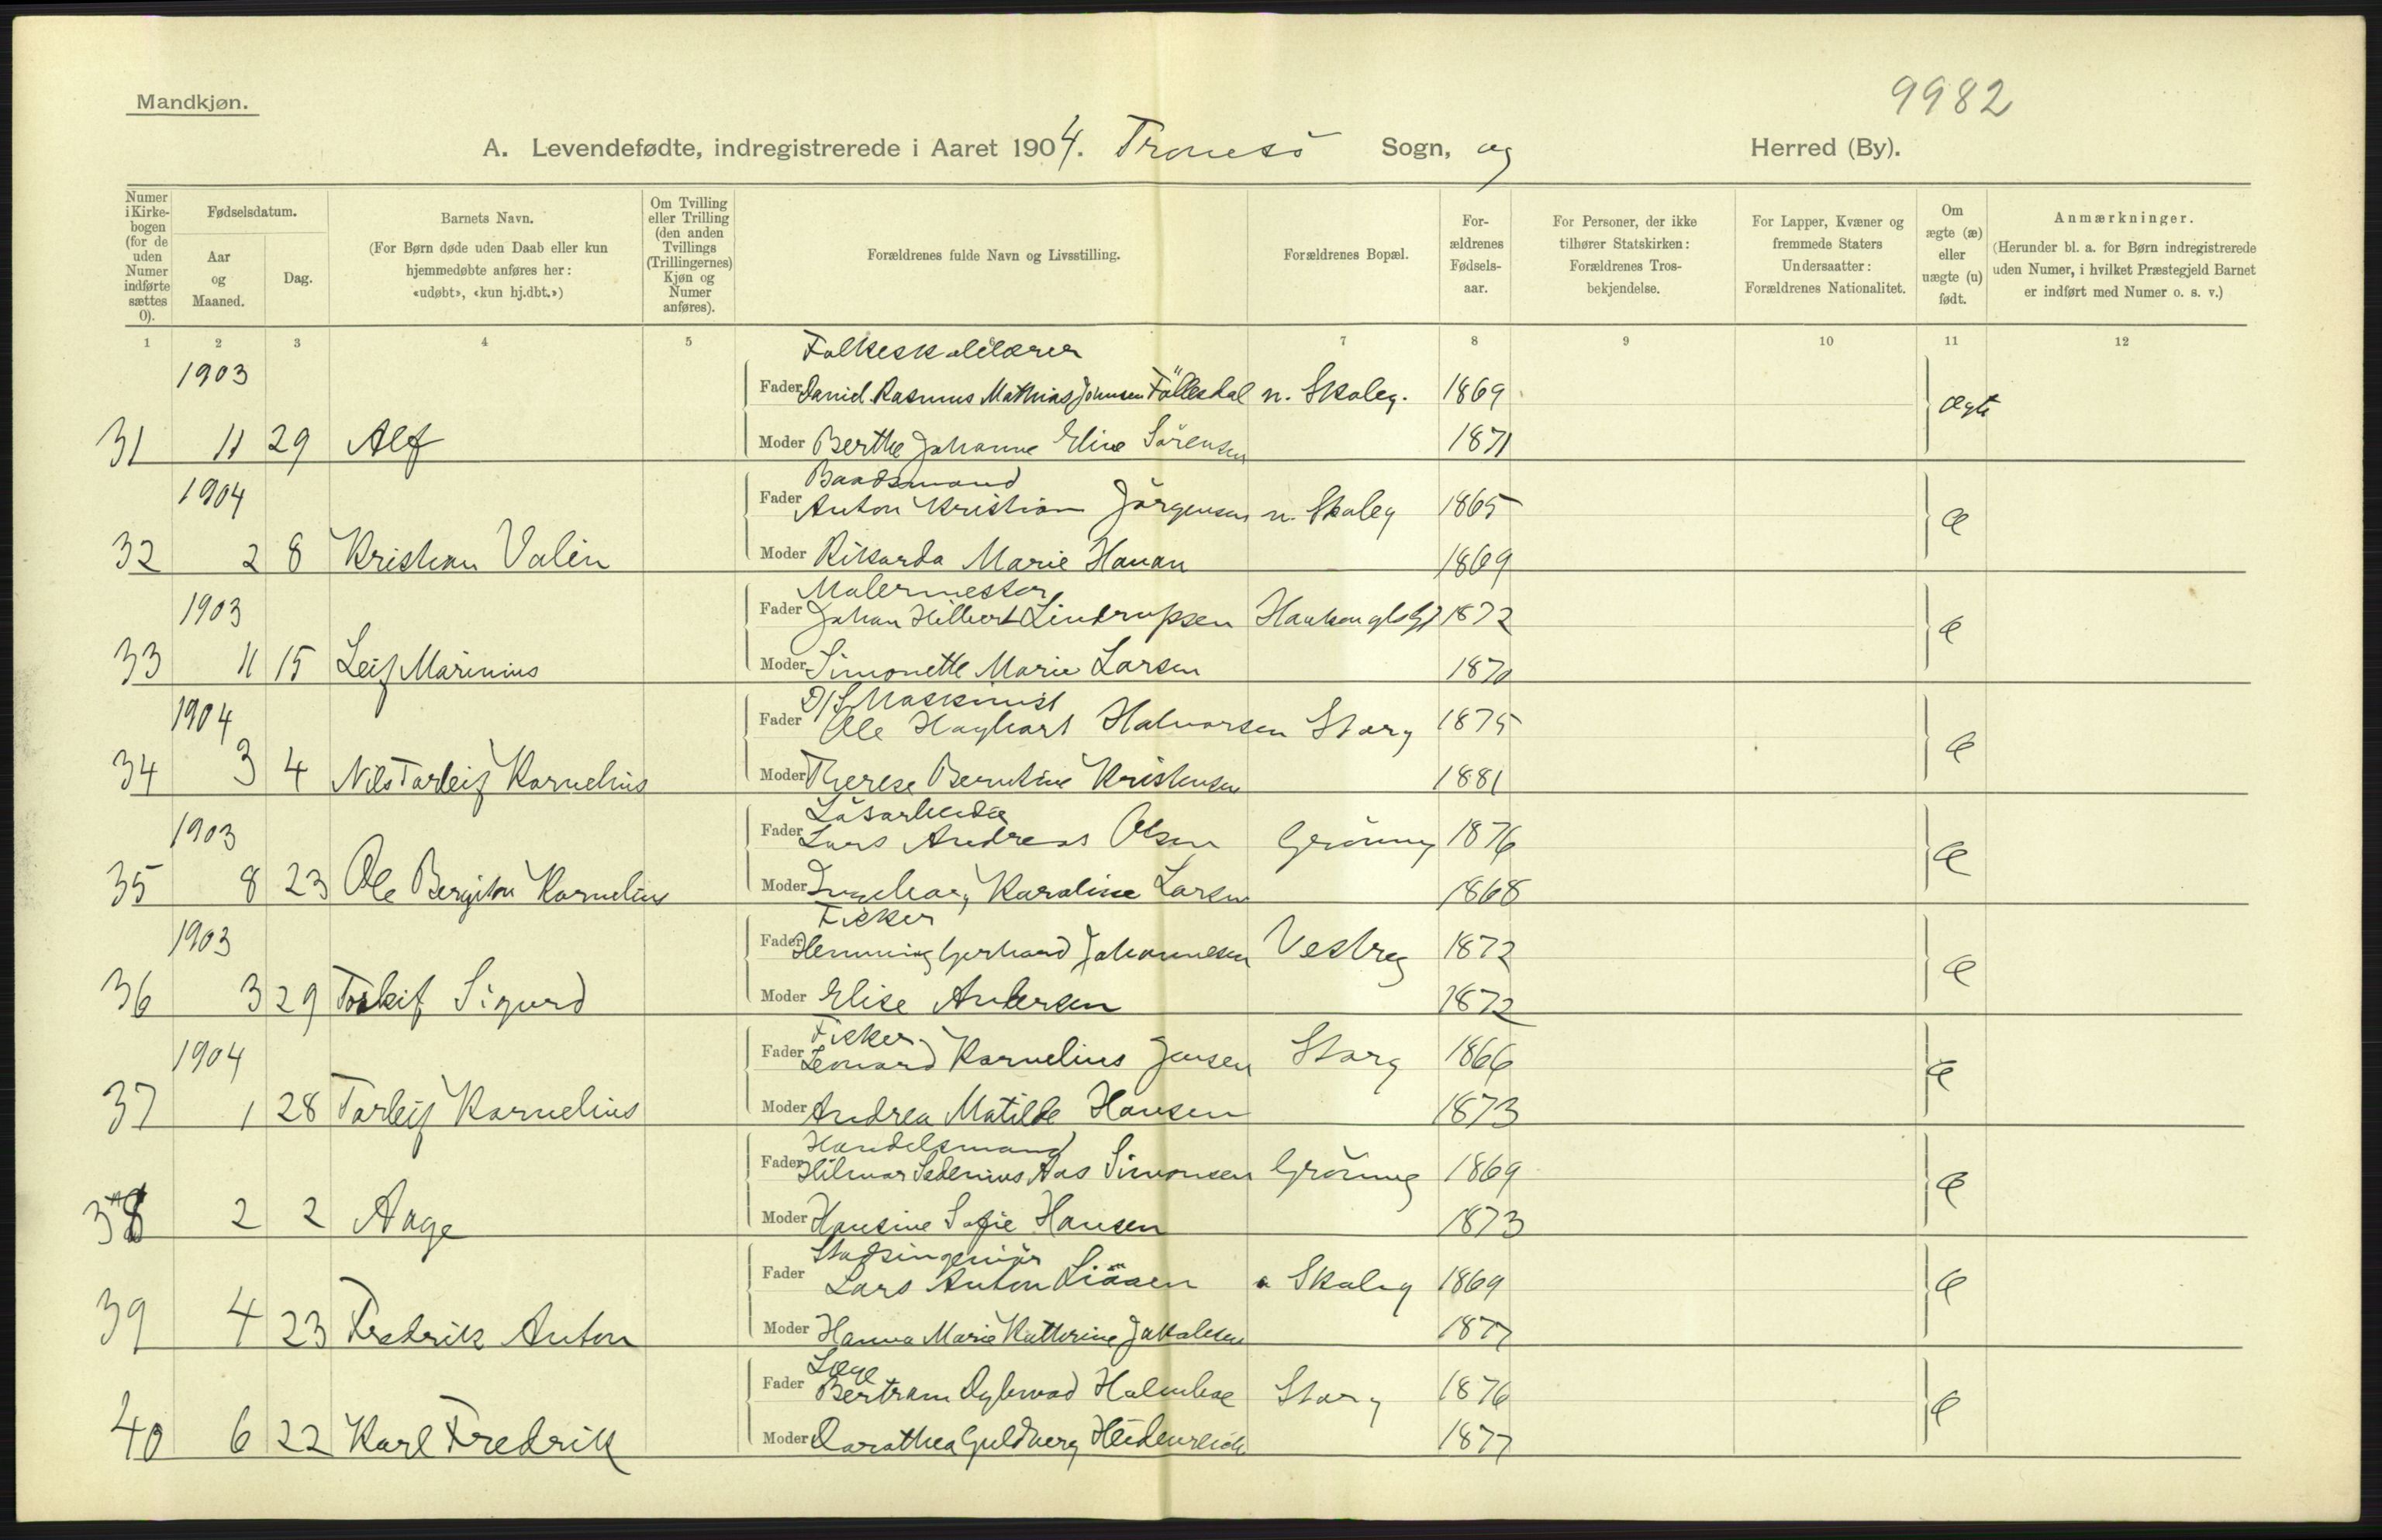 9982
Mandkjøn.
A. Levendefødte, indregistrerede i Aaret 1904. Tromsö Sogn, og Herred (By).
Numer i Kirkebogen (for de uden Numer indførte sættes 0).
Fødselsdatum.
Aar og Maaned.
Dag.
Barnets Navn.
(For Børn døde uden Daab eller kun hjemmedøbte anføres her: «udøbt», «kun hj.dbt.»)
Om Tvilling eller Trilling (den anden Tvillings (Trillingernes) Kjøn og Numer anføres).
Forældrenes fulde Navn og Livsstilling.
Forældrenes Bopæl.
For-ældrenes Fødsels-aar.
For Personer, der ikke tilhører Statskirken: Forældrenes Tros-bekjendelse.
For Lapper, Kvæner og fremmede Staters Undersaatter: Forældrenes Nationalitet.
Om ægte (æ) eller uægte (u) født.
Anmærkninger.
(Herunder bl. a. for Børn indregistrerede uden Numer, i hvilket Præstegjeld Barnet er indført med Numer o. s. v.)
1 2 3 4 5 7 8 9 10 11 12
Folkeskolelærer
1903 Fader Daniel Rasmus Mathias Johnsen Föllesdal n. Skoleg. 1869 ægte
31 11 29 Alf Moder Berthe Johanne Eline Sörensen 1871
Baadsmand
1904 Fader Anton Kristian Jörgensen n. Skoleg 1865 æ
32 2 8 Kristian Valin Moder Rikarda Marie Hanan 1869
Malermester
1903 Fader Johan Hilbert Lindrupsen 1872 æ
33 11 15 Leif Marinius Moder Simonette Marie Larsen 1870
D/S Maskinist
1904 Fader Ole Hagbart Halvorsen Storg 1875 æ
34 3 4 Nils Torleif Kornelius Moder Therese Berntine Kristensen 1881
Lösarbeider
1903 Fader Lars Andreas Olsen Grönneg 1876 æ
35 8 23 Ole Bergiton Kornelius Moder Ingeborg Karoline Larsen 1868
Fisker
1903 Fader Henning Gerhard Johannesen Vestreg 1872 æ
36 3 29 Torleif Sigurd Moder Elise Andersen 1872
Fisker
1904 Fader Leonard Kornelius Jensen Storg 1866 æ
37 1 28 Torleif Kornelius Moder Andrea Matilde Hansen 1873
Handelsmand
Fader Hilmar Sedenius Aas Simonsen Grönneg 1869 æ
38 2 2 Aage Moder Hansine Sofie Hansen 1873
Stadsingeniör
Fader Lars Anton Liåaen Skoleg 1869 æ
39 4 23 Fredrik Anton Moder Hanna Marie Kathrine Jakobsen 1877
Læge
Fader Bertram Dybwad Holmboe Storg 1876 æ
40 6 22 Karl Fredrik Moder Dorothea Guldberg Heidenreich 1877